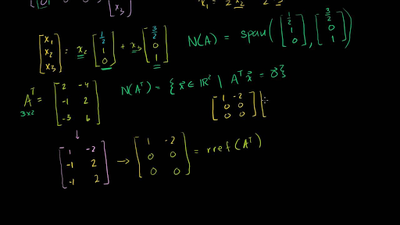 x₃
x₁ = 2 x₂ 2 x₃
[x₁ x₂ x₃] = x₂ [1/2 1 0] + x₃ [3/2 0 1] N(A) = span([1/2 1 0], [3/2 0 1])
Aᵀ = [2 -4; -1 2; -3 6] N(Aᵀ) = {x⃗ ∈ ℝ² | Aᵀx⃗ = 0⃗}
3x2
[1 -2; 0 0; 0 0] [
[1 -2; -1 2; -1 2] → [1 -2; 0 0; 0 0] = rref(Aᵀ)